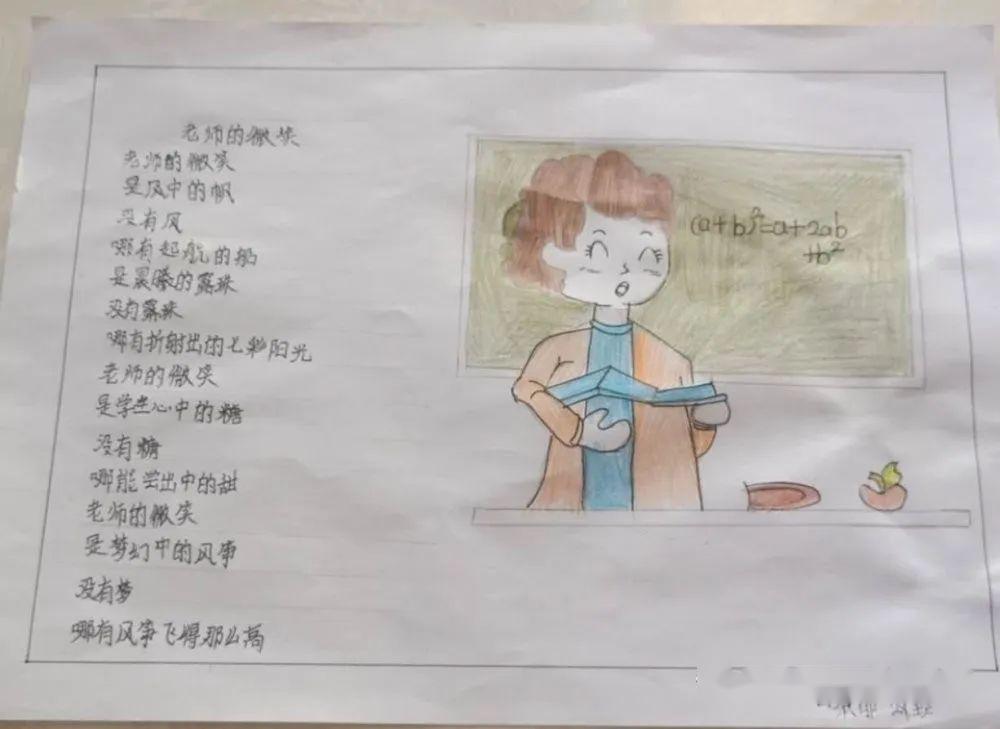 老师的微笑
老师的微笑
是风中的帆
没有风
哪有起航的船
是晨曦的露珠
没有露珠
哪有折射出的七彩阳光
老师的微笑
是学生心中的糖
没有糖
哪能尝出中的甜
老师的微笑
是梦幻中的风筝
没有梦
哪有风筝飞得那么高
(a+b)²=a+2ab
+b²